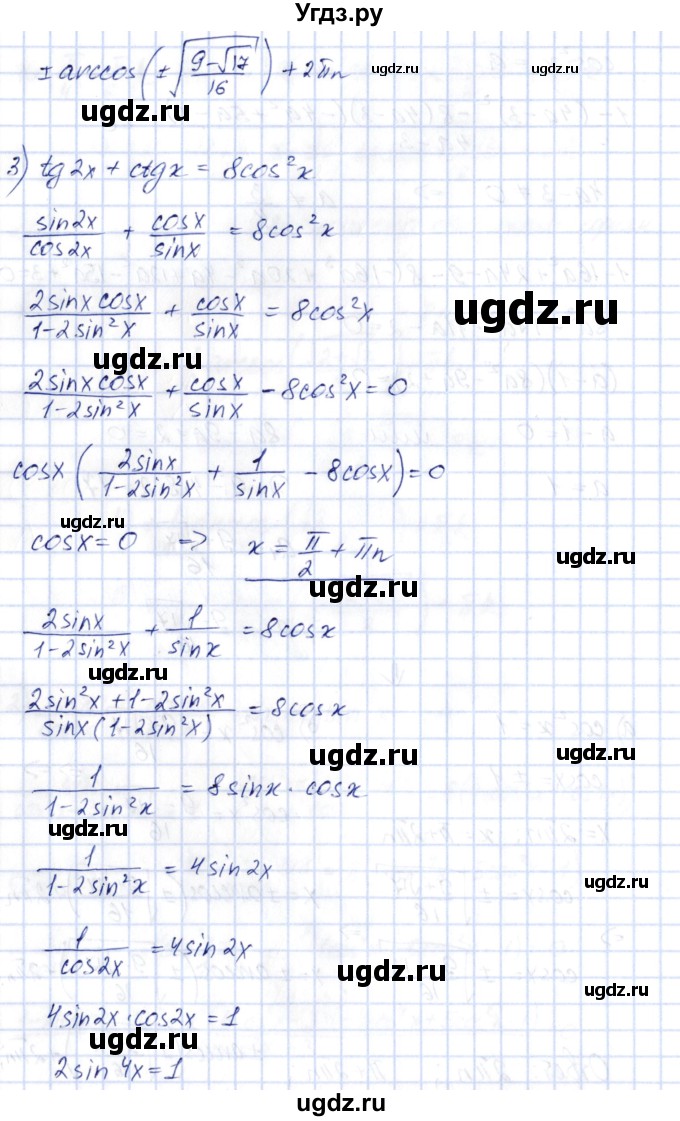 Угдз.ру
± arccos(±√((9-√17)/16)) + 2πn
ugdz.ru
ugdz.ru
ugdz.ru
3) tg2x + ctgx = 8cos²x
sin2x/cos2x + cosx/sinx = 8cos²x
2sinxcosx/(1-2sin²x) + cosx/sinx = 8cos²x
ugdz.ru
ugdz.ru
2sinxcosx/(1-2sin²x) + cosx/sinx - 8cos²x = 0
cosx(2sinx/(1-2sin²x) + 1/sinx - 8cosx) = 0
ugdz.ru
cosx = 0 => x = π/2 + πn
ugdz.ru
ugdz.ru
2sinx/(1-2sin²x) + 1/sinx = 8cosx
ugdz.ru
(2sin²x + 1 - 2sin²x)/(sinx(1-2sin²x)) = 8cosx
ugdz.ru
ugdz.ru
1/(1-2sin²x) = 8sinx · cosx
ugdz.ru
1/(1-2sin²x) = 4sin2x
ugdz.ru
1/cos2x = 4sin2x
ugdz.ru
ugdz.ru
4sin2x · cos2x = 1
ugdz.ru
2sin4x = 1
ugdz.ru